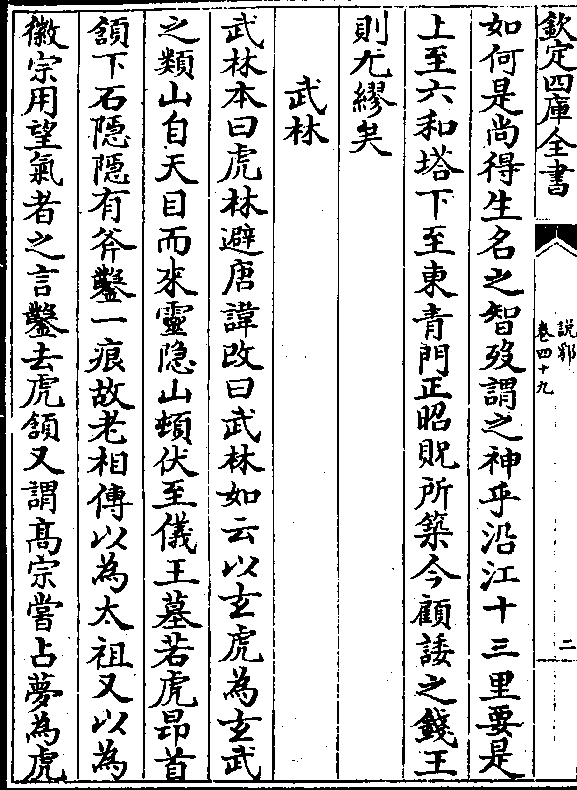 欽定四庫全書
說郛
卷四十九
二
如何是尚得生名之智歿謂之神乎沿江十三里要是
上至六和塔下至東青門正昭貺所築今顧諉之錢王
則尤繆矣
武林
武林本曰虎林避唐諱改曰武林如云以玄虎為玄武
之類山自天目而來靈隐山頓伏至儀王墓若虎昂首
頷下石隱隱有斧鑿一痕故老相傳以為太祖又以為
徽宗用望氣者之言鑿去虎頷又謂高宗嘗占夢為虎